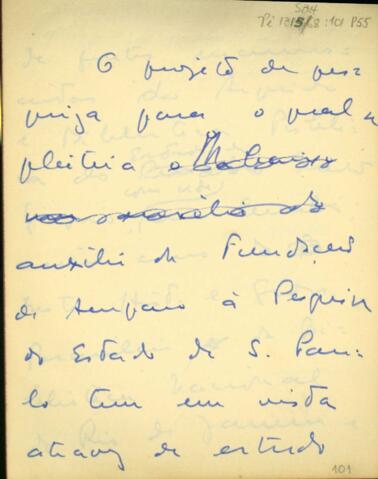 SBH
Pi 1315/68:101 P55
O projeto de pes
quiza para o qual se
pleiteia o
auxilio da Fundação
de Amparo à Pesquisa
do Estado de S. Pau-
lo tem em vista
atravez de estudo
101